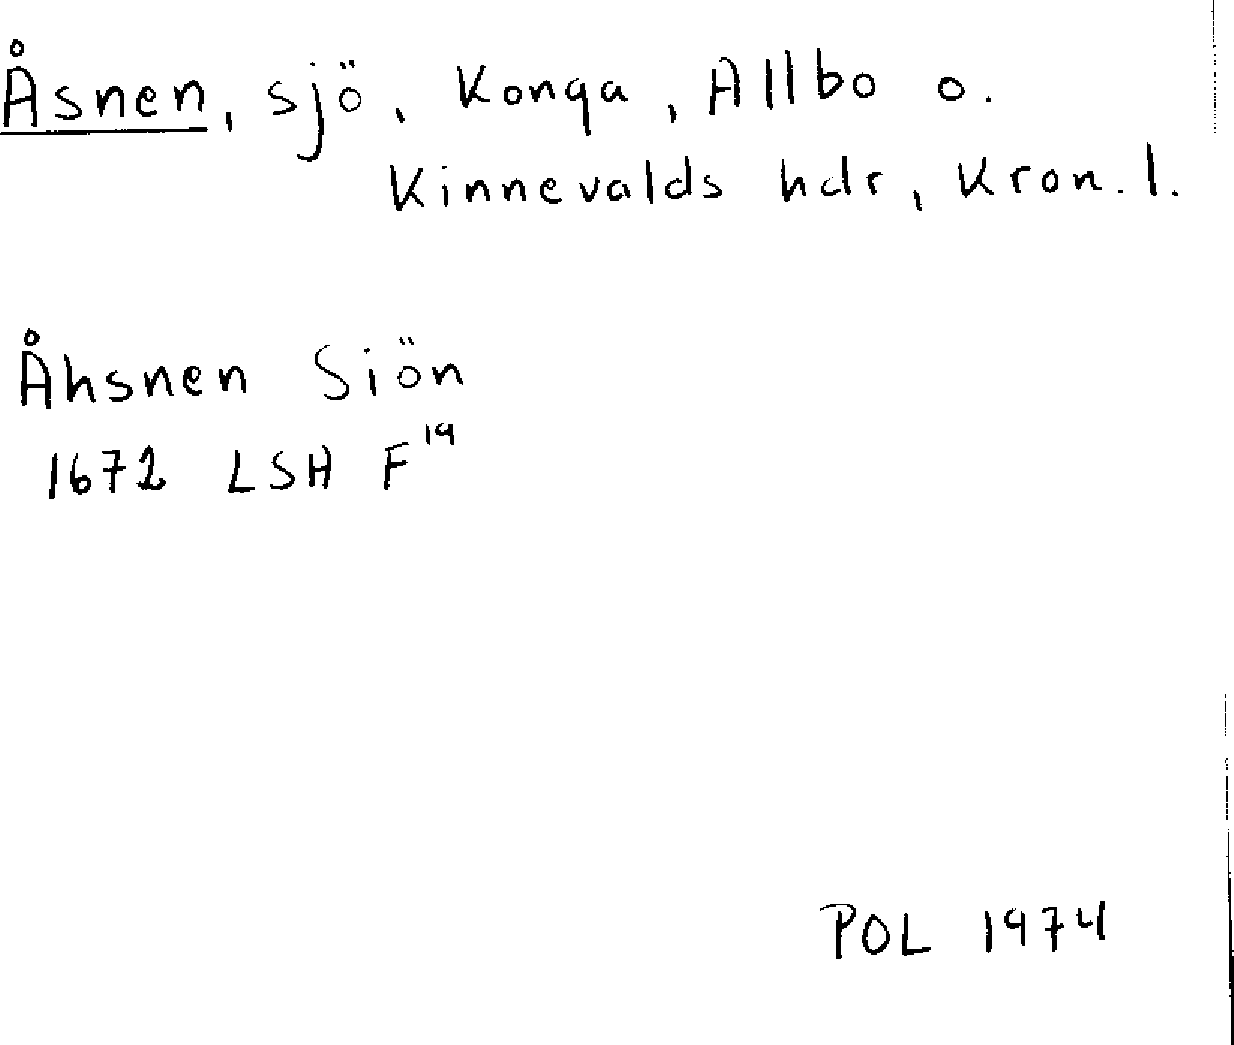 Åsnen, sjö, Konga, Allbo o.
Kinnevalds hdr, Kron. l.
Åhsnen Siön
1672 LSH F¹⁹
POL 1974